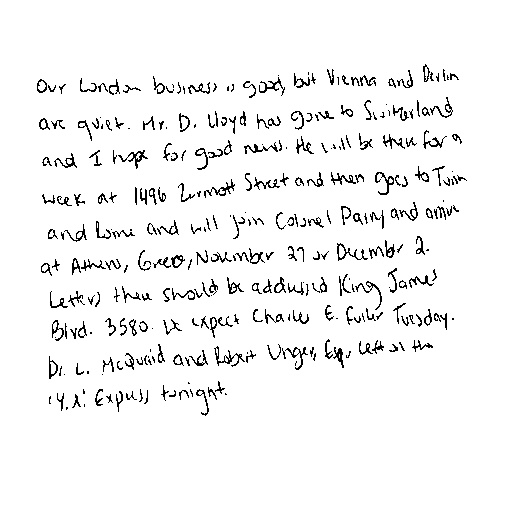 Our London business is good, but Vienna and Berlin
are quiet. Mr. D. Lloyd has gone to Switzerland
and I hope for good news. He will be there for a
week at 1496 Zermott Street and then goes to Turin
and Rome and will join Colonel Parry and arrive
at Athens, Greece, November 27 or December 2.
Letters there should be addressed King James
Blvd. 3580. We expect Charles E. Fuller Tuesday.
Dr. L. McQuaid and Robert Unger, Esq., left on the
'Y.X.' Express tonight.